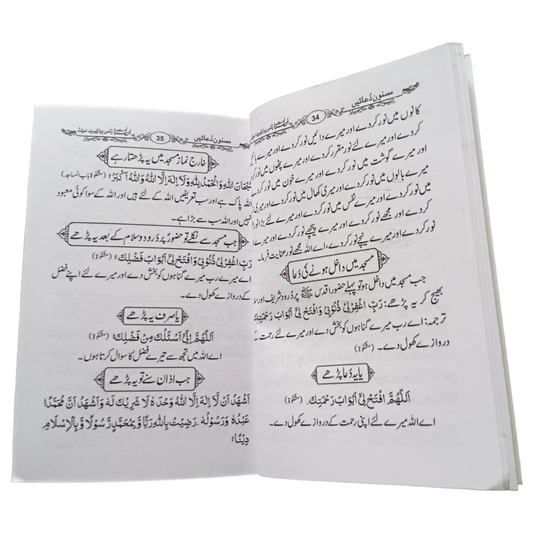 مسنون دُعائیں
34
کانوں میں نور کر دے اور میرے دائیں نور کر دے اور میرے بائیں
نور کر دے اور میرے لئے نور مقرر کر دے اور میرے پٹھوں میں نور کر دے اور
میرے گوشت میں نور کر دے اور میرے خون میں نور کر دے اور
میرے بالوں میں نور کر دے اور میری کھال میں نور کر دے اور میری زبان
میں نور کر دے اور میرے نفس میں نور کر دے اور مجھے بڑا نور
کر دے اور مجھے نور کر دے اور میرے پیچھے نور کر دے اور میرے
نور کر دے اور میرے نیچے نور کر دے، اے اللہ مجھے نور عنایت فرما۔
مسجد میں داخل ہونے کی دُعا
جب مسجد میں داخل ہو تو پہلے حضور اقدس ﷺ پر دُرود شریف اور سلام
بھیج کر یہ پڑھے: رَبِّ اغْفِرْلِیْ ذُنُوْبِیْ وَافْتَحْ لِیْ اَبْوَابَ رَحْمَتِكَ
ترجمہ: اے رب میرے گناہوں کو بخش دے اور میرے لئے اپنی رحمت کے
دروازے کھول دے۔ (مشکوٰۃ)
یا یہ دُعا پڑھے
اَللّٰهُمَّ افْتَحْ لِیْ اَبْوَابَ رَحْمَتِكَ
اے اللہ میرے لئے اپنی رحمت کے دروازے کھول دے۔
مسنون دُعائیں
35
خارج نماز مسجد میں یہ پڑھتا رہے
سُبْحَانَ اللّٰهِ وَالْحَمْدُ لِلّٰهِ وَلَا اِلٰهَ اِلَّا اللّٰهُ وَاللّٰهُ اَكْبَرُ (مشکوٰۃ باب المساجد)
اللہ پاک ہے اور سب تعریفیں اللہ کے لئے ہیں اور اللہ کے سوا کوئی معبود
نہیں اور اللہ سب سے بڑا ہے۔
جب مسجد سے نکلے تو حضورؐ پر دُرود و سلام کے بعد یہ پڑھے
رَبِّ اغْفِرْلِیْ ذُنُوْبِیْ وَافْتَحْ لِیْ اَبْوَابَ فَضْلِكَ (مشکوٰۃ)
اے رب میرے گناہوں کو بخش دے اور میرے لئے اپنے فضل
کے دروازے کھول دے۔
یا صرف یہ پڑھے
اَللّٰهُمَّ اِنِّیْ اَسْئَلُكَ مِنْ فَضْلِكَ (مشکوٰۃ)
اے اللہ میں تجھ سے تیرے فضل کا سوال کرتا ہوں۔
جب اذان سنے تو یہ پڑھے
اَشْهَدُ اَنْ لَّا اِلٰهَ اِلَّا اللّٰهُ وَحْدَهٗ لَا شَرِیْكَ لَهٗ وَاَشْهَدُ اَنَّ مُحَمَّدًا
عَبْدُهٗ وَرَسُوْلُهٗ۔ رَضِیْتُ بِاللّٰهِ رَبًّا وَّبِمُحَمَّدٍ رَّسُوْلًا وَّبِالْاِسْلَامِ
دِیْنًا